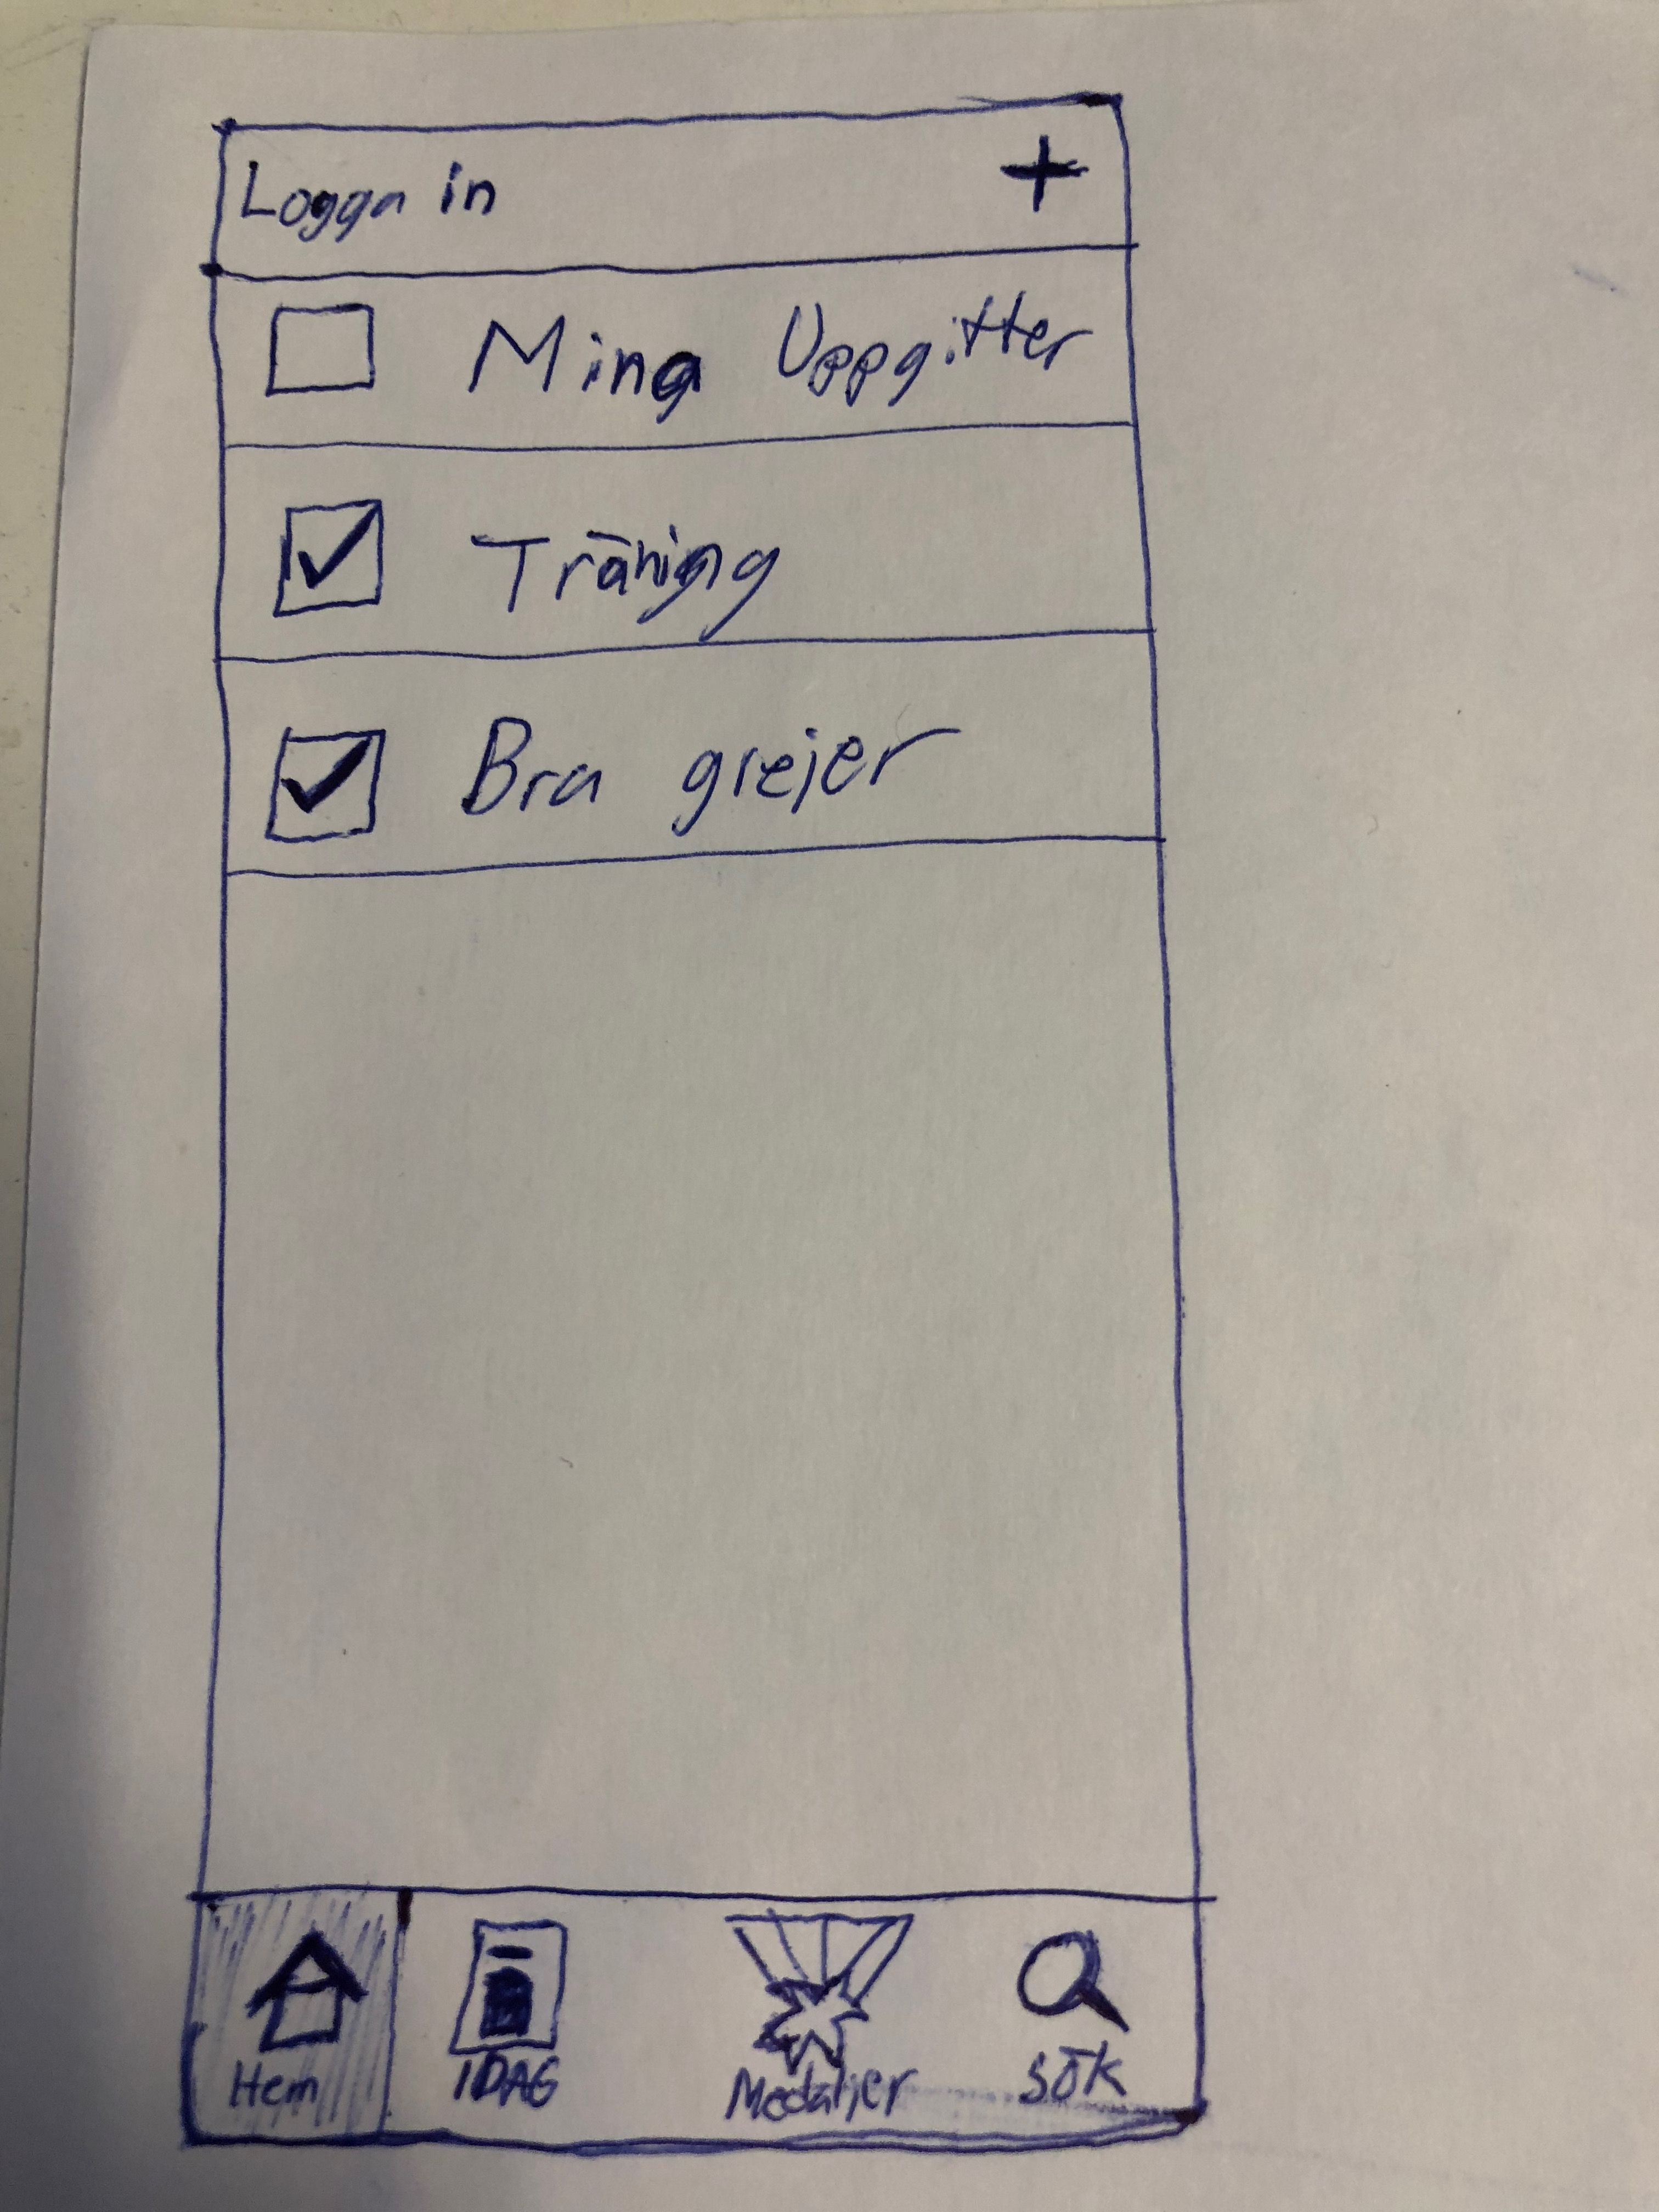 Logga in +
Mina Uppgifter
Träning
Bra grejer
Hem IDAG Medaljer Sök